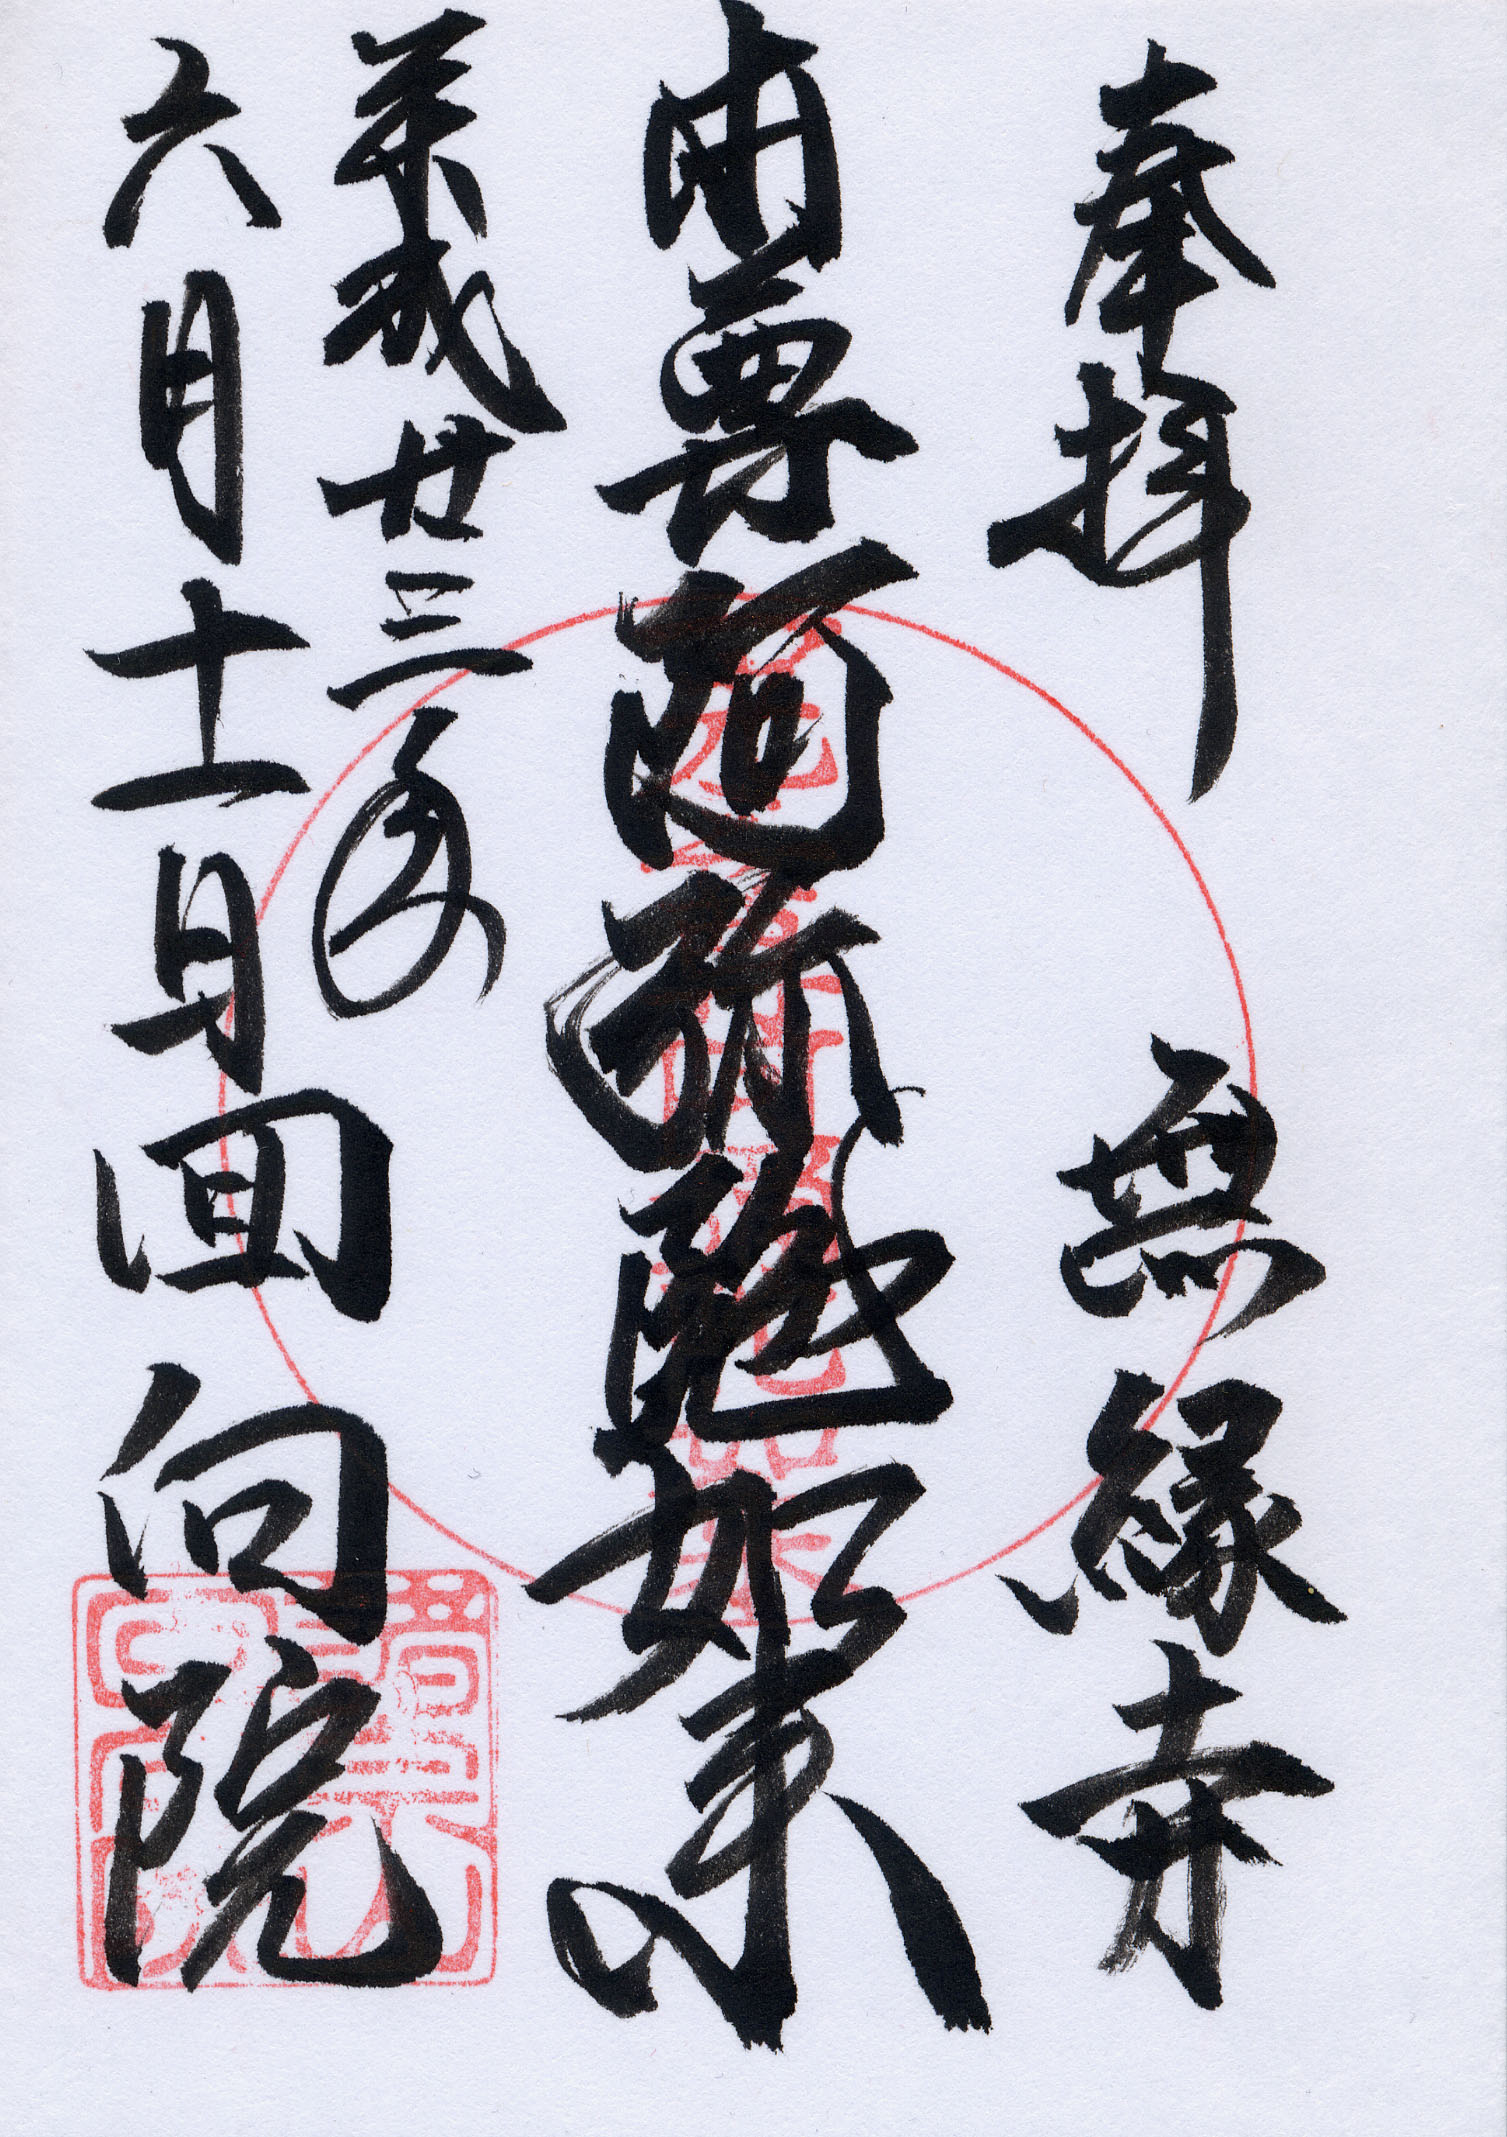 奉拝 無縁寺
本尊阿弥陀如来
平成廿三年
六月十一日 回向院